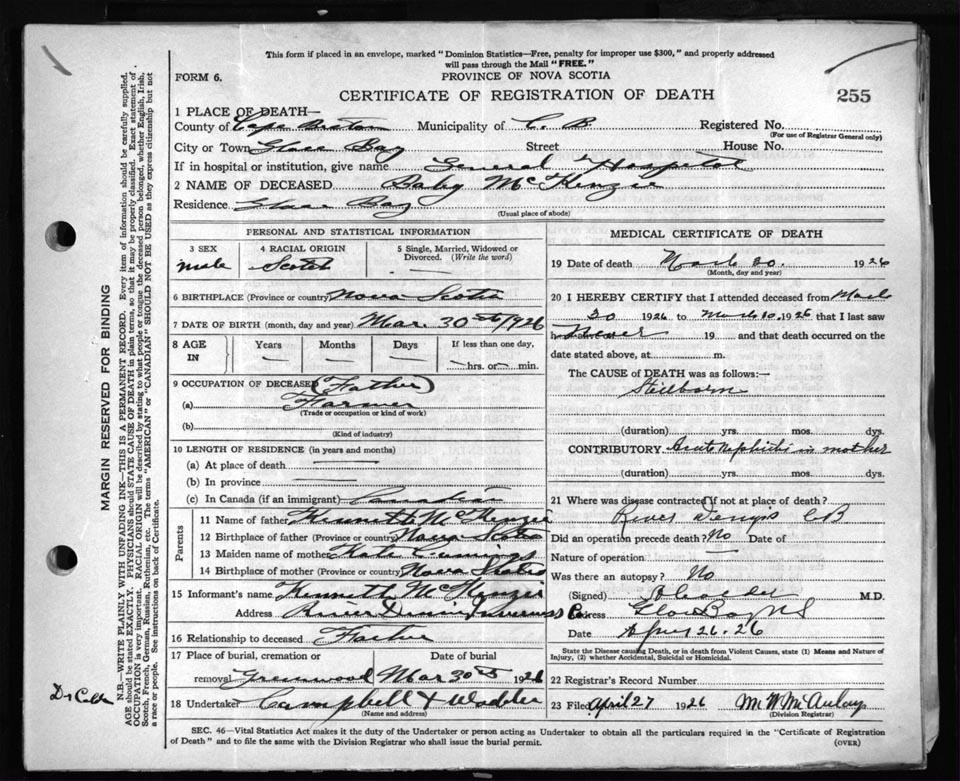 This form if placed in an envelope, marked "Dominion Statistics—Free, penalty for improper use $300," and properly addressed
will pass through the Mail "FREE."
FORM 6.
PROVINCE OF NOVA SCOTIA
CERTIFICATE OF REGISTRATION OF DEATH
255
1 PLACE OF DEATH—
County of Cape Breton Municipality of C. B Registered No.
(For use of Registrar General only)
City or Town Glace Bay Street House No.
If in hospital or institution, give name General Hospital
2 NAME OF DECEASED Baby McKenzie
Residence Glace Bay
(Usual place of abode)
PERSONAL AND STATISTICAL INFORMATION
3 SEX 4 RACIAL ORIGIN 5 Single, Married, Widowed or Divorced. (Write the word)
male Scotch —
6 BIRTHPLACE (Province or country) Nova Scotia
7 DATE OF BIRTH (month, day and year) Mar. 30th 1926
8 AGE IN Years Months Days If less than one day,
— — — — hrs. or — min.
9 OCCUPATION OF DECEASED (Father)
(a) Farmer
(Trade or occupation or kind of work)
(b)
(Kind of industry)
10 LENGTH OF RESIDENCE (in years and months)
(a) At place of death —
(b) In province —
(c) In Canada (if an immigrant) Canadian
Parents
11 Name of father Kenneth McKenzie
12 Birthplace of father (Province or country) Nova Scotia
13 Maiden name of mother Kate Cumings
14 Birthplace of mother (Province or country) Nova Scotia
15 Informant's name Kenneth McKenzie
Address River Inverness Co.
16 Relationship to deceased Father
17 Place of burial, cremation or Date of burial
removal Greenwood Mar 30th 1926
18 Undertaker Campbell &
(Name and address)
MEDICAL CERTIFICATE OF DEATH
19 Date of death March 30. 1926
(Month, day and year)
20 I HEREBY CERTIFY that I attended deceased from March
30 1926 to March 30, 1926 that I last saw
h never 19 and that death occurred on the
date stated above, at m.
The CAUSE of DEATH was as follows:—
Stillborn
(duration) yrs. mos. dys.
CONTRIBUTORY Acute Nephritis in mother
(duration) yrs. mos. dys.
21 Where was disease contracted if not at place of death?
River CB
Did an operation precede death? No Date of
Nature of operation —
Was there an autopsy? No
(Signed) M.D.
Address Glace Bay NS
Date Apr 26. 26
State the Disease causing Death, or in death from Violent Causes, state (1) Means and Nature of
Injury, (2) whether Accidental, Suicidal or Homicidal.
22 Registrar's Record Number
23 Filed April 27 1926 M W McAulay
(Division Registrar)
SEC. 46—Vital Statistics Act makes it the duty of the Undertaker or person acting as Undertaker to obtain all the particulars required in the "Certificate of Registration
of Death" and to file the same with the Division Registrar who shall issue the burial permit.
(OVER)
MARGIN RESERVED FOR BINDING
N.B.—WRITE PLAINLY WITH UNFADING INK—THIS IS A PERMANENT RECORD. Every item of information should be carefully supplied.
AGE should be stated EXACTLY. PHYSICIANS should STATE CAUSE OF DEATH in plain terms, so that it may be properly classified. Exact statement of
OCCUPATION is very important. RACIAL ORIGIN will be described by stating to what people or tongue the deceased person belonged, whether English, Irish,
Scotch, French, German, Russian, Ruthenian, etc. The terms "AMERICAN" or "CANADIAN" SHOULD NOT BE USED as they express citizenship but not
a race or people. See instructions on back of Certificate.